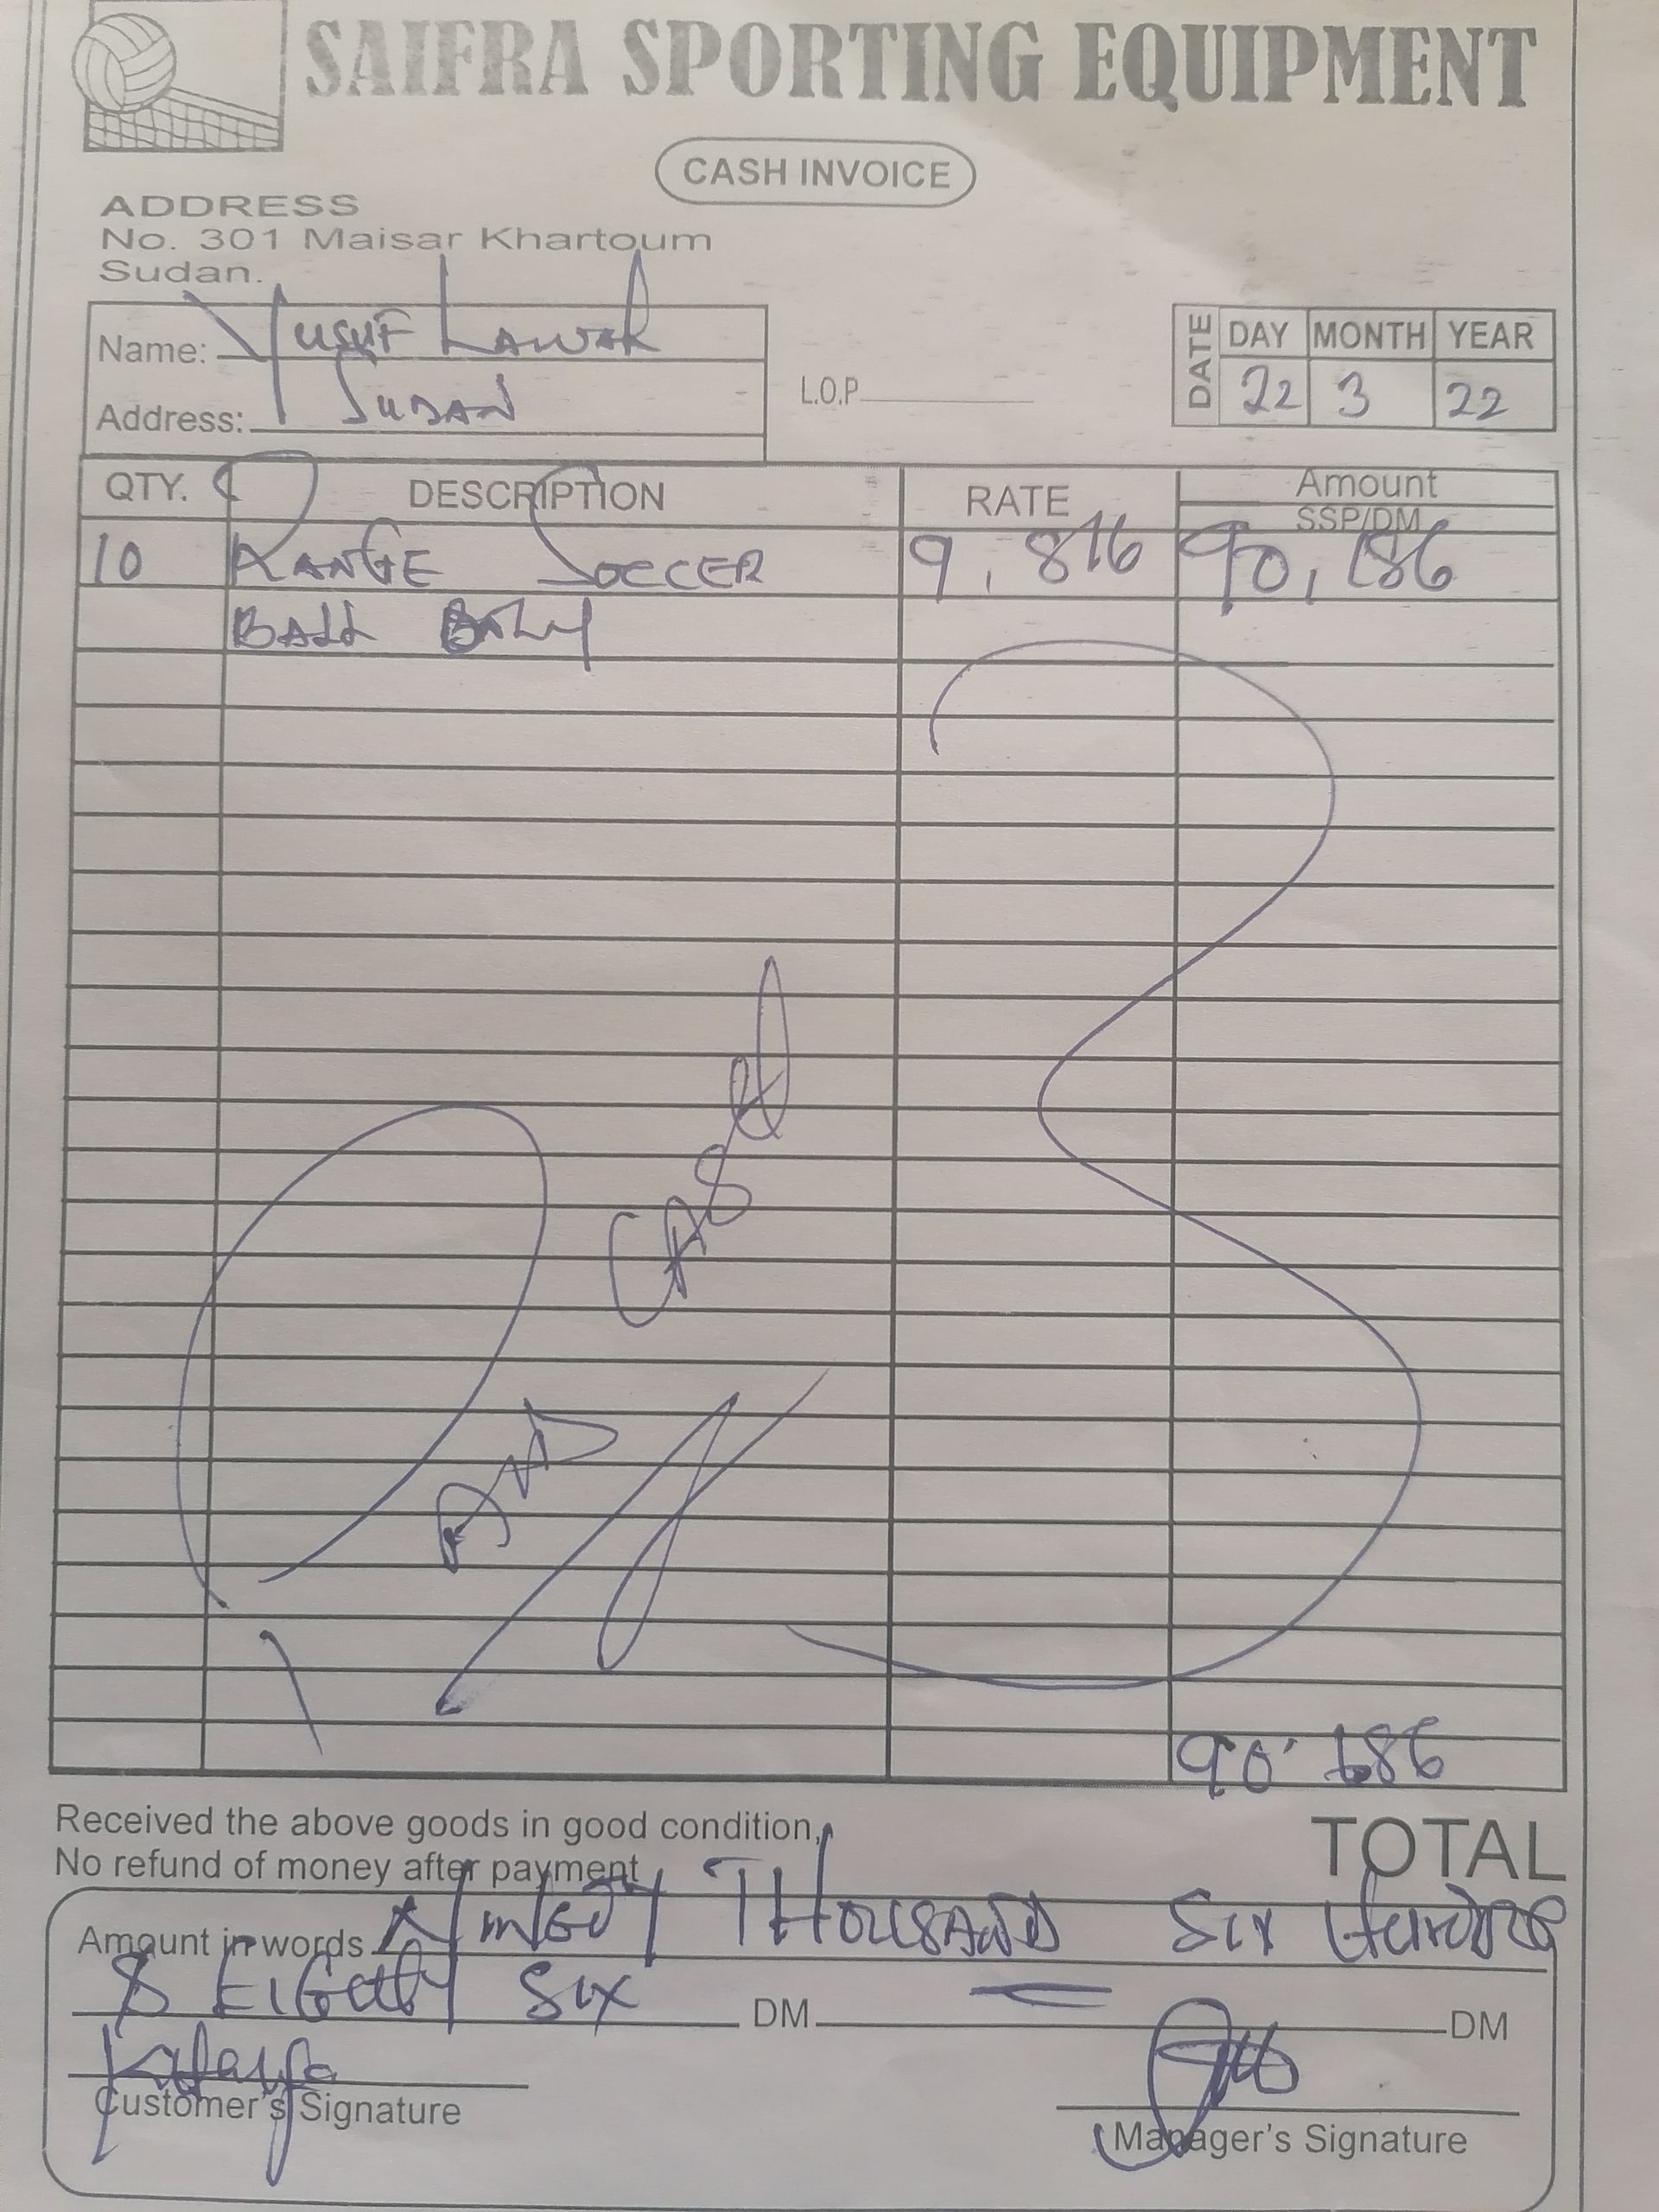 SAIFRA SPORTING EQUIPMENT
CASH INVOICE
ADDRESS
No. 301 Maisar Khartoum
Sudan.
Name: Yusuf Lawal
Address: SUDAN
L.O.P
DATE DAY MONTH YEAR
22 3 22
QTY. DESCRIPTION RATE Amount
SSP/DM
10 RANGE SOCCER 9,816 90,186
BALL
CASH
PAID
90,686
Received the above goods in good condition,
No refund of money after payment
TOTAL
Amount in words NINETY THOUSAND SIX
& EIGHTY SIX DM DM
Customer's Signature
Manager's Signature